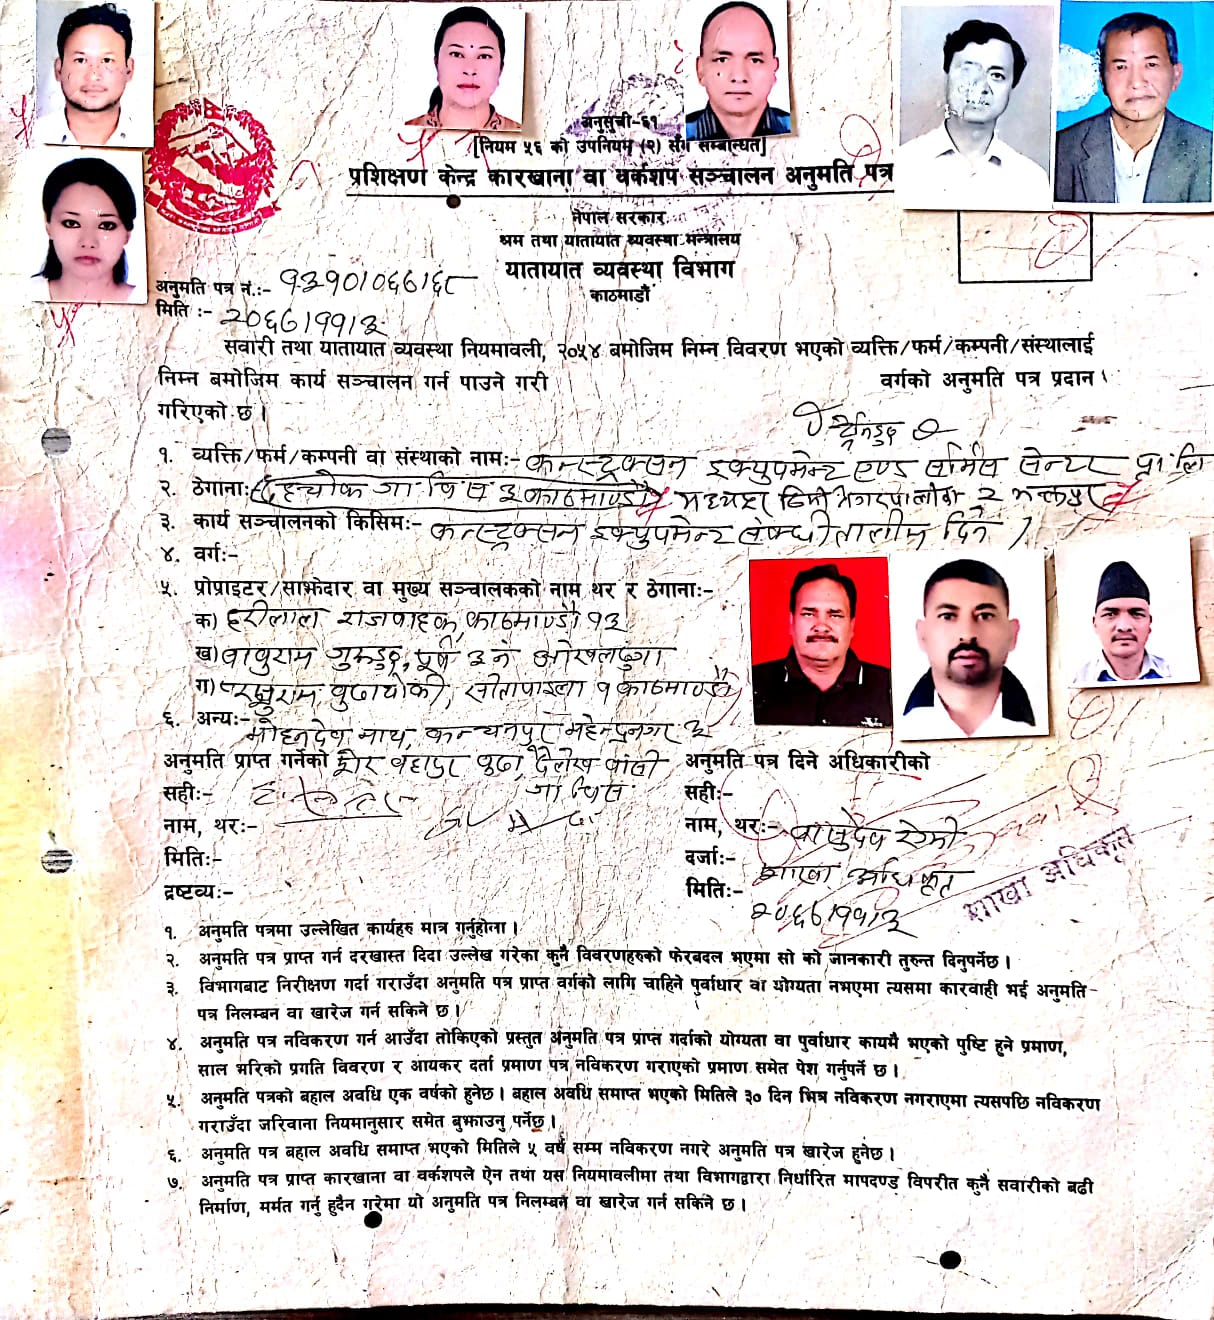 अनुसूची-६१
[नियम ५६ को उपनियम (२) सँग सम्बन्धित]
प्रशिक्षण केन्द्र कारखाना वा वर्कशप सञ्चालन अनुमति पत्र
नेपाल सरकार
श्रम तथा यातायात व्यवस्था मन्त्रालय
यातायात व्यवस्था विभाग
काठमाडौं
अनुमति पत्र नं.:- १३१०।०६७।६८
मिति :- २०६७।११।३
सवारी तथा यातायात व्यवस्था नियमावली, २०५४ बमोजिम निम्न विवरण भएको व्यक्ति/फर्म/कम्पनी/संस्थालाई
निम्न बमोजिम कार्य सञ्चालन गर्न पाउने गरी वर्गको अनुमति पत्र प्रदान
गरिएको छ।
१. व्यक्ति/फर्म/कम्पनी वा संस्थाको नाम:- कन्स्ट्रक्सन इक्युपमेन्ट एण्ड सर्भिस सेन्टर प्रा.लि
२. ठेगाना: दहचोक गा.वि.स ३ काठमाण्डौ मध्यपुर ठिमी नगरपालीका २
३. कार्य सञ्चालनको किसिम:- कन्स्ट्रक्सन इक्युपमेन्ट संबन्धी तालीम दिने।
४. वर्ग:-
५. प्रोप्राइटर/साझेदार वा मुख्य सञ्चालकको नाम थर र ठेगाना:-
क) हरीलाल राजपाहक, काठमाण्डौ १३
ख) बाबुराम गुरुङ, पूर्व ३ नं ओखलढुंगा
ग) परशुराम बुढाथोकी, सीतापाइला १ काठमाण्डौ
६. अन्य:- मोहनदेव नाथ, कन्चनपुर महेन्द्रनगर ३
अनुमति प्राप्त गर्नेको वीर बहादुर बुढा, दैलेख अनुमति पत्र दिने अधिकारीको
सही:- गा वि स सही:-
नाम, थर:- नाम, थर:- बासुदेव
मिति:- दर्जा:- शाखा अधिकृत
द्रष्टव्य:- मिति:- २०६७।११।३
शाखा अधिकृत
१. अनुमति पत्रमा उल्लेखित कार्यहरु मात्र गर्नुहोला।
२. अनुमति पत्र प्राप्त गर्न दरखास्त दिदा उल्लेख गरेका कुनै विवरणहरुको फेरबदल भएमा सो को जानकारी तुरुन्त दिनुपर्नेछ।
३. विभागबाट निरीक्षण गर्दा गराउँदा अनुमति पत्र प्राप्त वर्गको लागि चाहिने पुर्वाधार वा योग्यता नभएमा त्यसमा कारवाही भई अनुमति-
पत्र निलम्बन वा खारेज गर्न सकिने छ।
४. अनुमति पत्र नविकरण गर्न आउँदा तोकिएको प्रस्तुत अनुमति पत्र प्राप्त गर्दाको योग्यता वा पुर्वाधार कायमै भएको पुष्टि हुने प्रमाण,
साल भरिको प्रगति विवरण र आयकर दर्ता प्रमाण पत्र नविकरण गराएको प्रमाण समेत पेश गर्नुपर्ने छ।
५. अनुमति पत्रको बहाल अवधि एक वर्षको हुनेछ। बहाल अवधि समाप्त भएको मितिले ३० दिन भित्र नविकरण नगराएमा त्यसपछि नविकरण
गराउँदा जरिवाना नियमानुसार समेत बुझाउनु पर्नेछ।
६. अनुमति पत्र बहाल अवधि समाप्त भएको मितिले ५ वर्ष सम्म नविकरण नगरे अनुमति पत्र खारेज हुनेछ।
७. अनुमति पत्र प्राप्त कारखाना वा वर्कशपले ऐन तथा यस नियमावलीमा तथा विभागद्वारा निर्धारित मापदण्ड विपरीत कुनै सवारीको बढी
निर्माण, मर्मत गर्नु हुदैन गरेमा यो अनुमति पत्र निलम्बन वा खारेज गर्न सकिने छ।